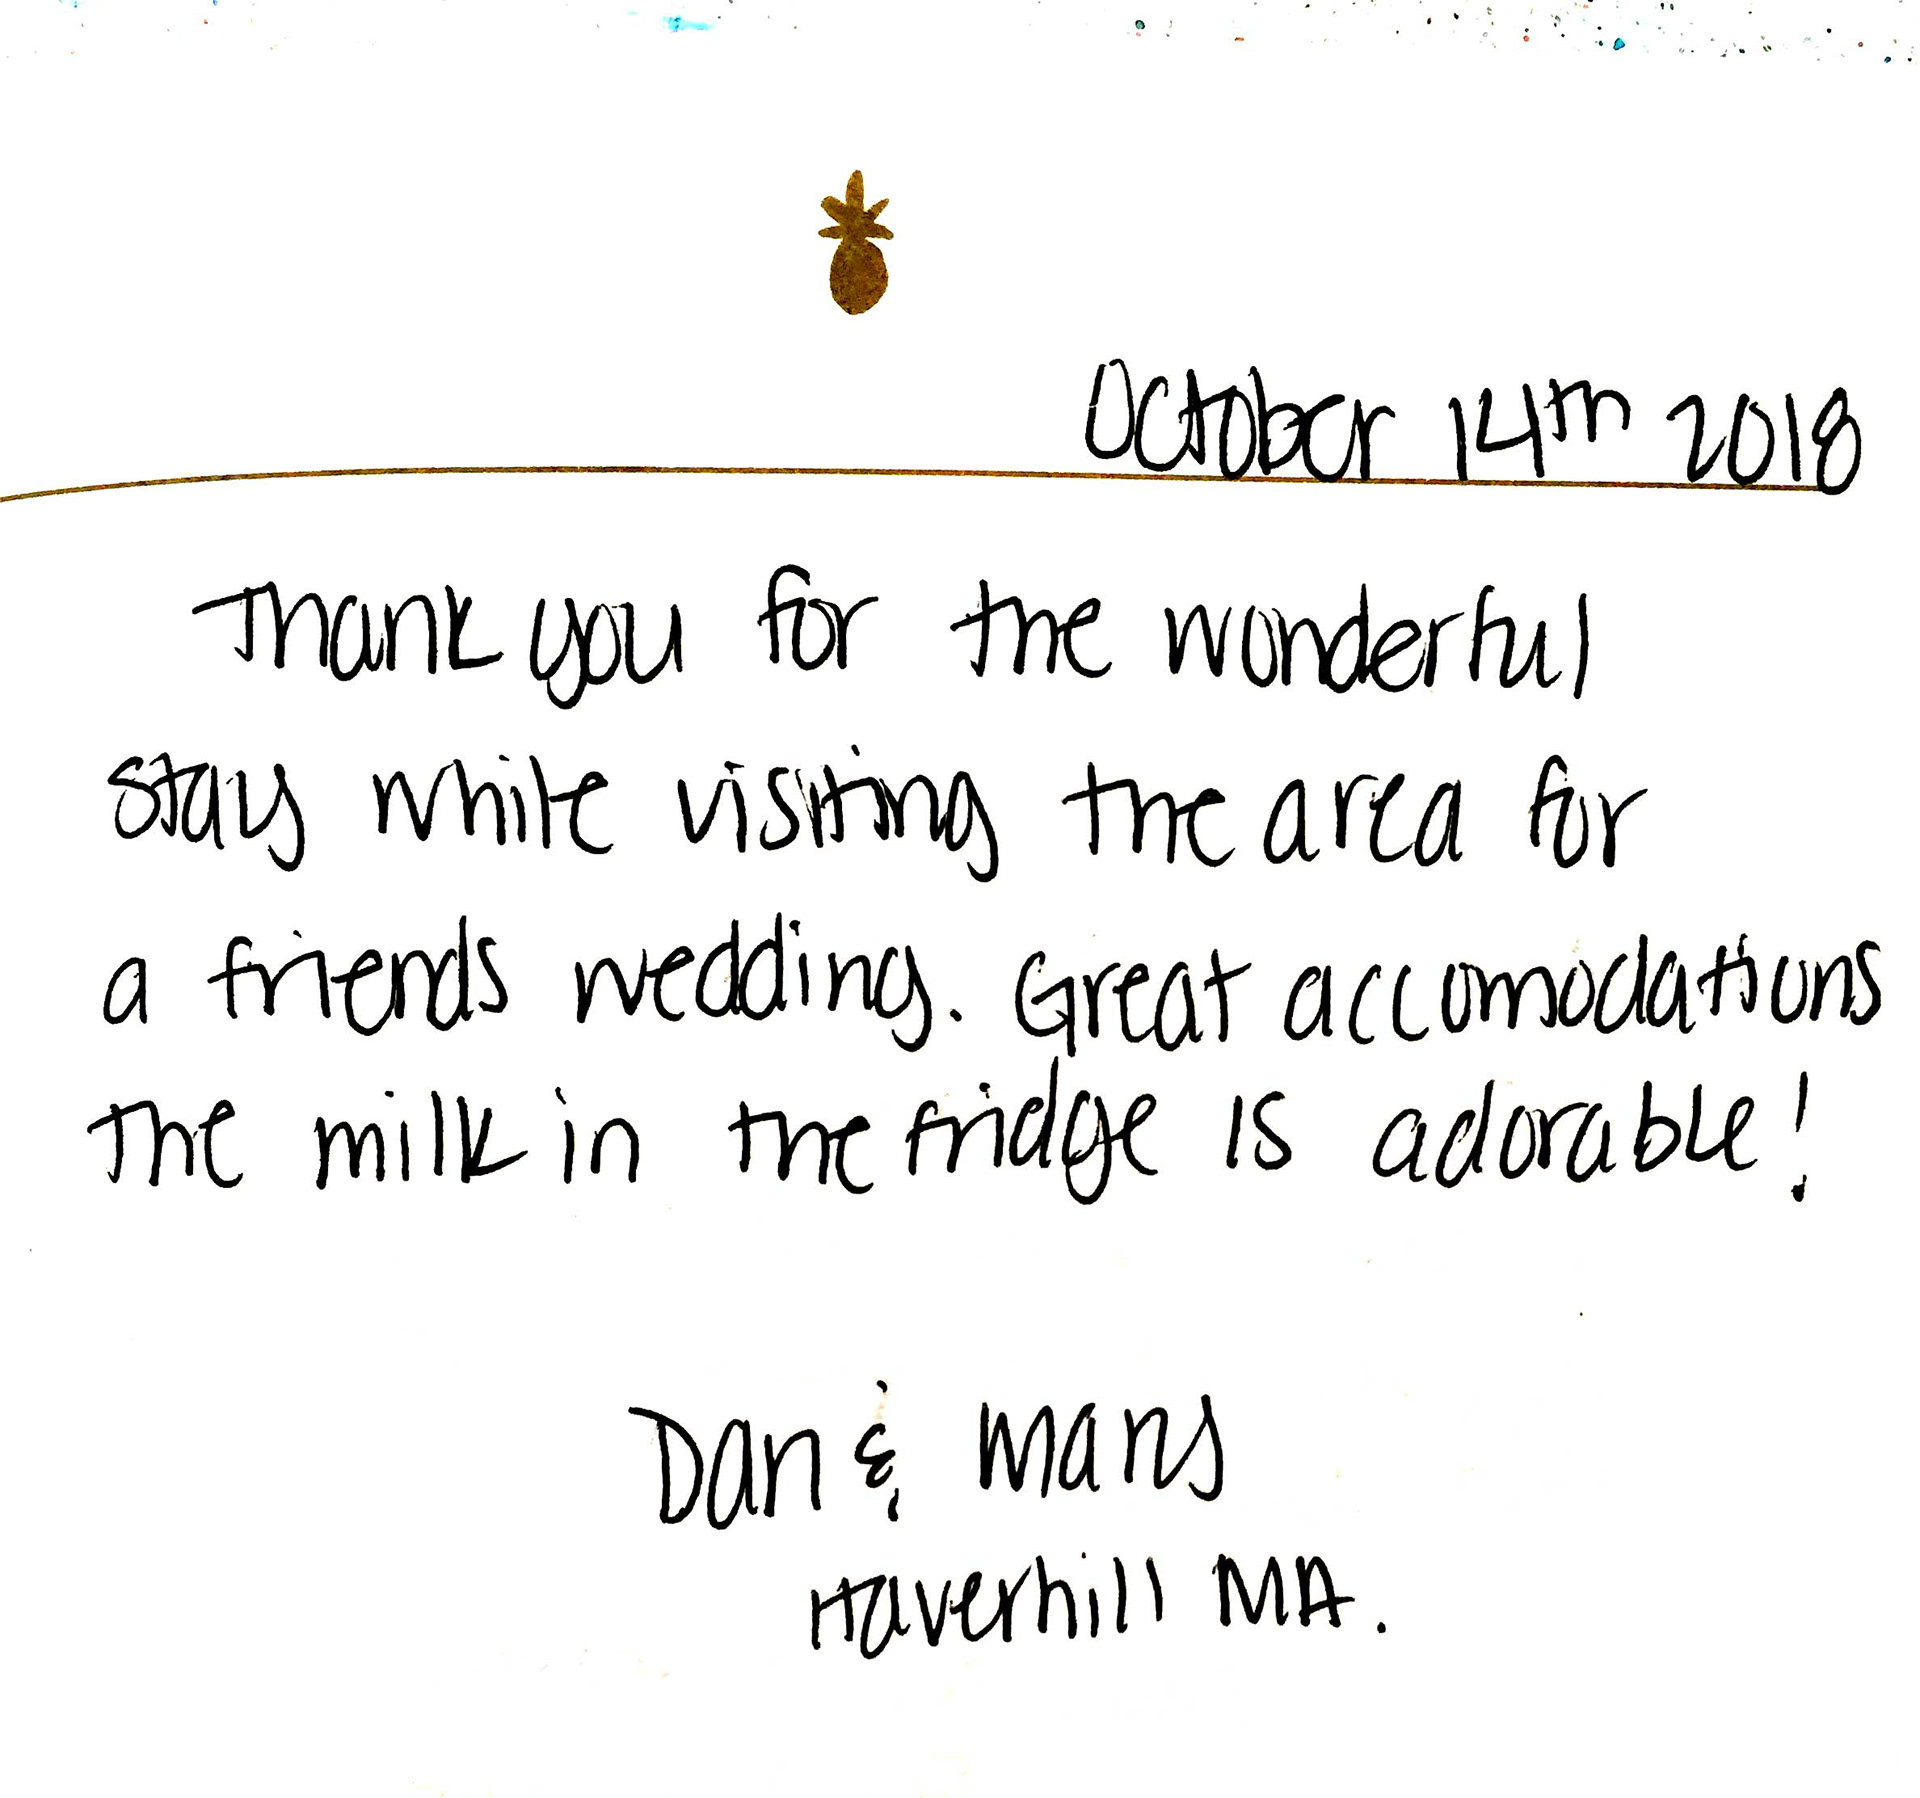 October 14th 2018
Thank you for the wonderful
stay while visiting the area for
a friends wedding. Great accomodations
The milk in the fridge is adorable!
Dan & Mary
Haverhill MA.